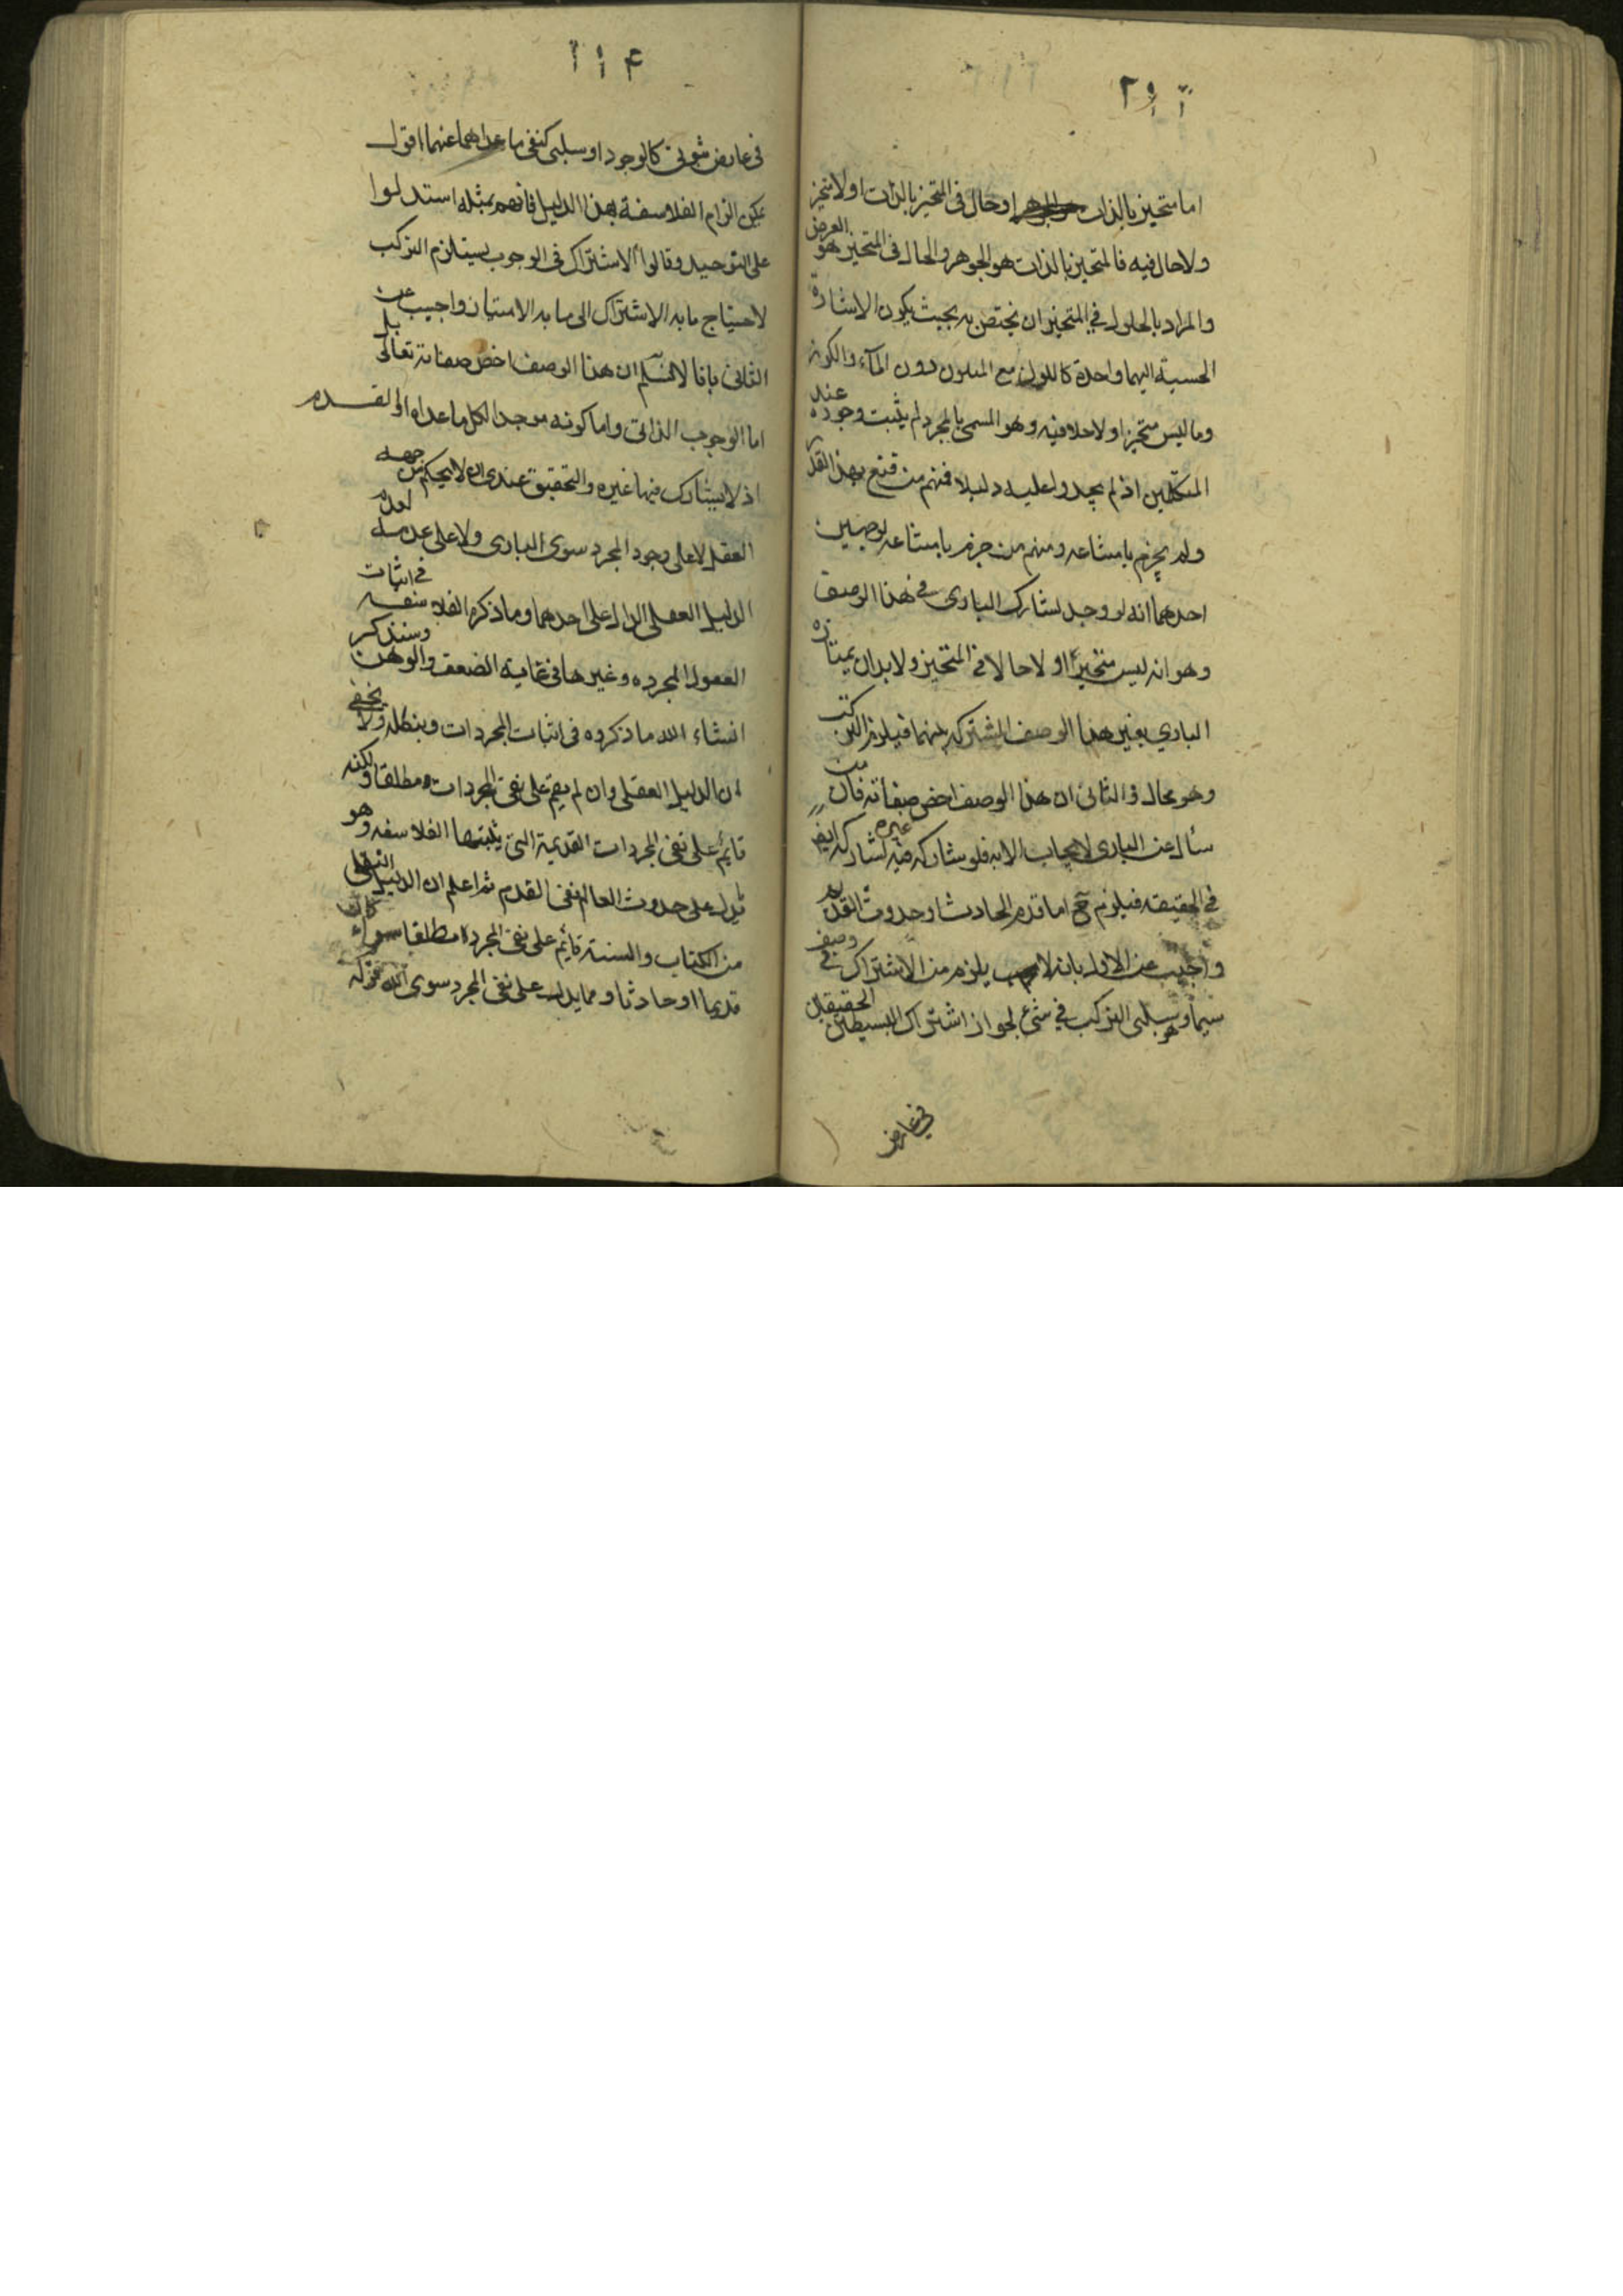 اما متحيز بالذات او حال فى المتحيز بالذات او لا متحيز
ولا حال فيه فالمتحيز بالذات هو الجوهر والحال فى المتحيز هو العرض
والمراد بالحلول في المتحيز ان يختص به بحيث يكون الاشارة
الحسية اليهما واحدة كاللون مع المتلون دون المآء والكوز
وما ليس متحيزا ولا حلا فيه وهو المسمى بالمجرد لم يثبت وجوده عند
المتكلمين اذ لم يجدوا عليه دليلا فمنهم من قنع بهذا القدر
ولم يجزم بامتناعه ومنهم من جزم بامتناعه لوجهين
احدهما انه لو وجد لشارك البارى في هذا الوصف
وهو انه ليس متحيزا ولا حالا في المتحيز ولا بد ان يمتازه
الباري بغير هذا الوصف المشترك بينهما فيلزم التركب
وهو محال و الثانى ان هذا الوصف اخص صفاته فان من
سأل عن البارى لا يجاب الا به فلو شاركه فيه غيره لشاركه ايضا
في الحقيقه فيلزم ح اما قدم الحادث او حدوث القديم
واجيب عن الاول بانه لا يلزم من الاشتراك في وصف
سيما وهو سلبى التركب في شئ لجواز اشتراك البسيطين الحقيقيين
في عارض
فى عارض ثبوتى كالوجود او سلبى كنفى ما عداهما عنهما اقول
يمكن الزام الفلاسفة بهذا الدليل فانهم بمثله استدلوا
على التوحيد وقالوا الاشتراك فى الوجوب يستلزم التركب
لاحتياج ما به الاشتراك الى ما به الامتياز واجيب عن
الثانى بانا لا نسلم ان هذا الوصف اخص صفاته تعالى بل
اما الوجوب الذاتى واما كونه موجدا لكل ما عداه او القدم
اذ لا يشارك فيها غيره والتحقيق عندى ان لا يحكم من جهه
العقل لا على وجود المجرد سوى البارى ولا على عدمه لعدم
الدليل العقلى الدال على احدهما وما ذكره الفلاسفه في اثبات
العقول المجرده وغيرها فى غاية الضعف والوهن وسنذكر
انشاء الله ما ذكروه فى اثبات المجردات ونبطله ولا يخفى
ان الدليل العقلى وان لم يقم على نفى المجردات مطلقا ولكنه
قايم على نفى المجردات القديمة التى يثبتها الفلاسفه وهو
يدل على حدوث العالم نفى القدم ثم اعلم ان الدليل النقلى
من الكتاب والسنة قايم على نفى المجرد مطلقا سواء كان
قديما او حادثا ومما يدل على نفى المجرد سوى الله قوله